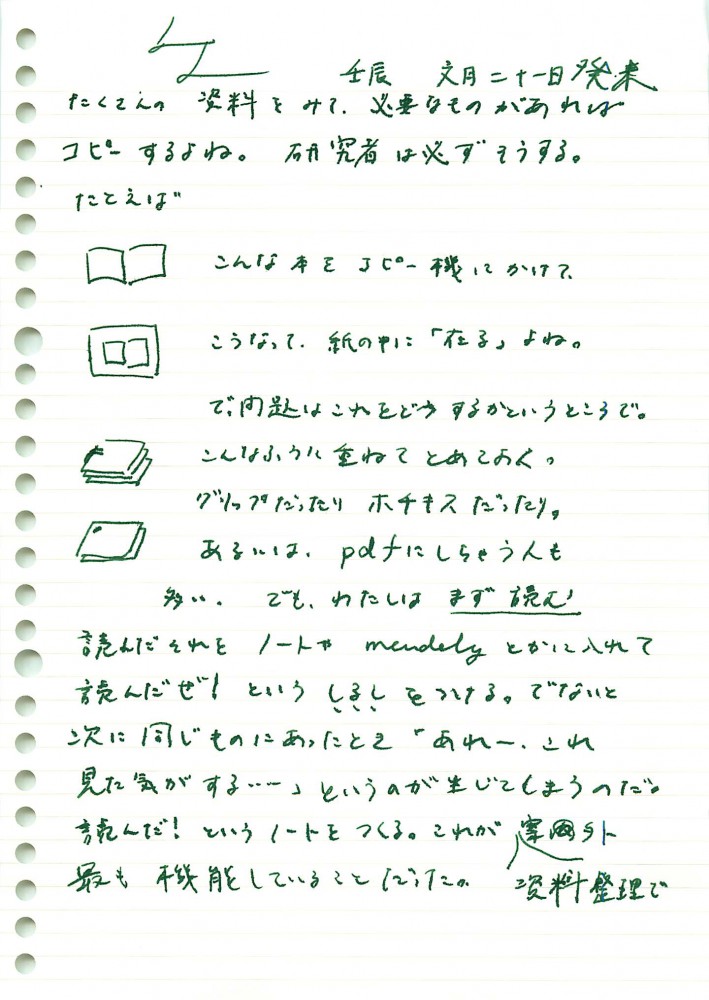 壬辰 文月二十一日発来
たくさんの 資料をみて、必要なものがあれば
コピーするよね。 研究者は必ずそうする。
たとえば
こんな本をコピー機にかけて、
こうなって、紙の中に「在る」よね。
で、問題はこれをどうするかというところで。
こんなふうに重ねてとめておく。
グリップだったり ホチキスだったり。
あるいは、pdfにしちゃう人も
多い。 でも、わたしは まず読む!
読んだそれを ノートや mendely とかに入れて
読んだぜ! という しるし をつける。でないと
次に同じものにあったとき「あれー、これ
見た気がする……」というのが生じてしまうのだ。
読んだ! というノートをつくる。これが 案外
最も 機能していることだった。 資料整理で